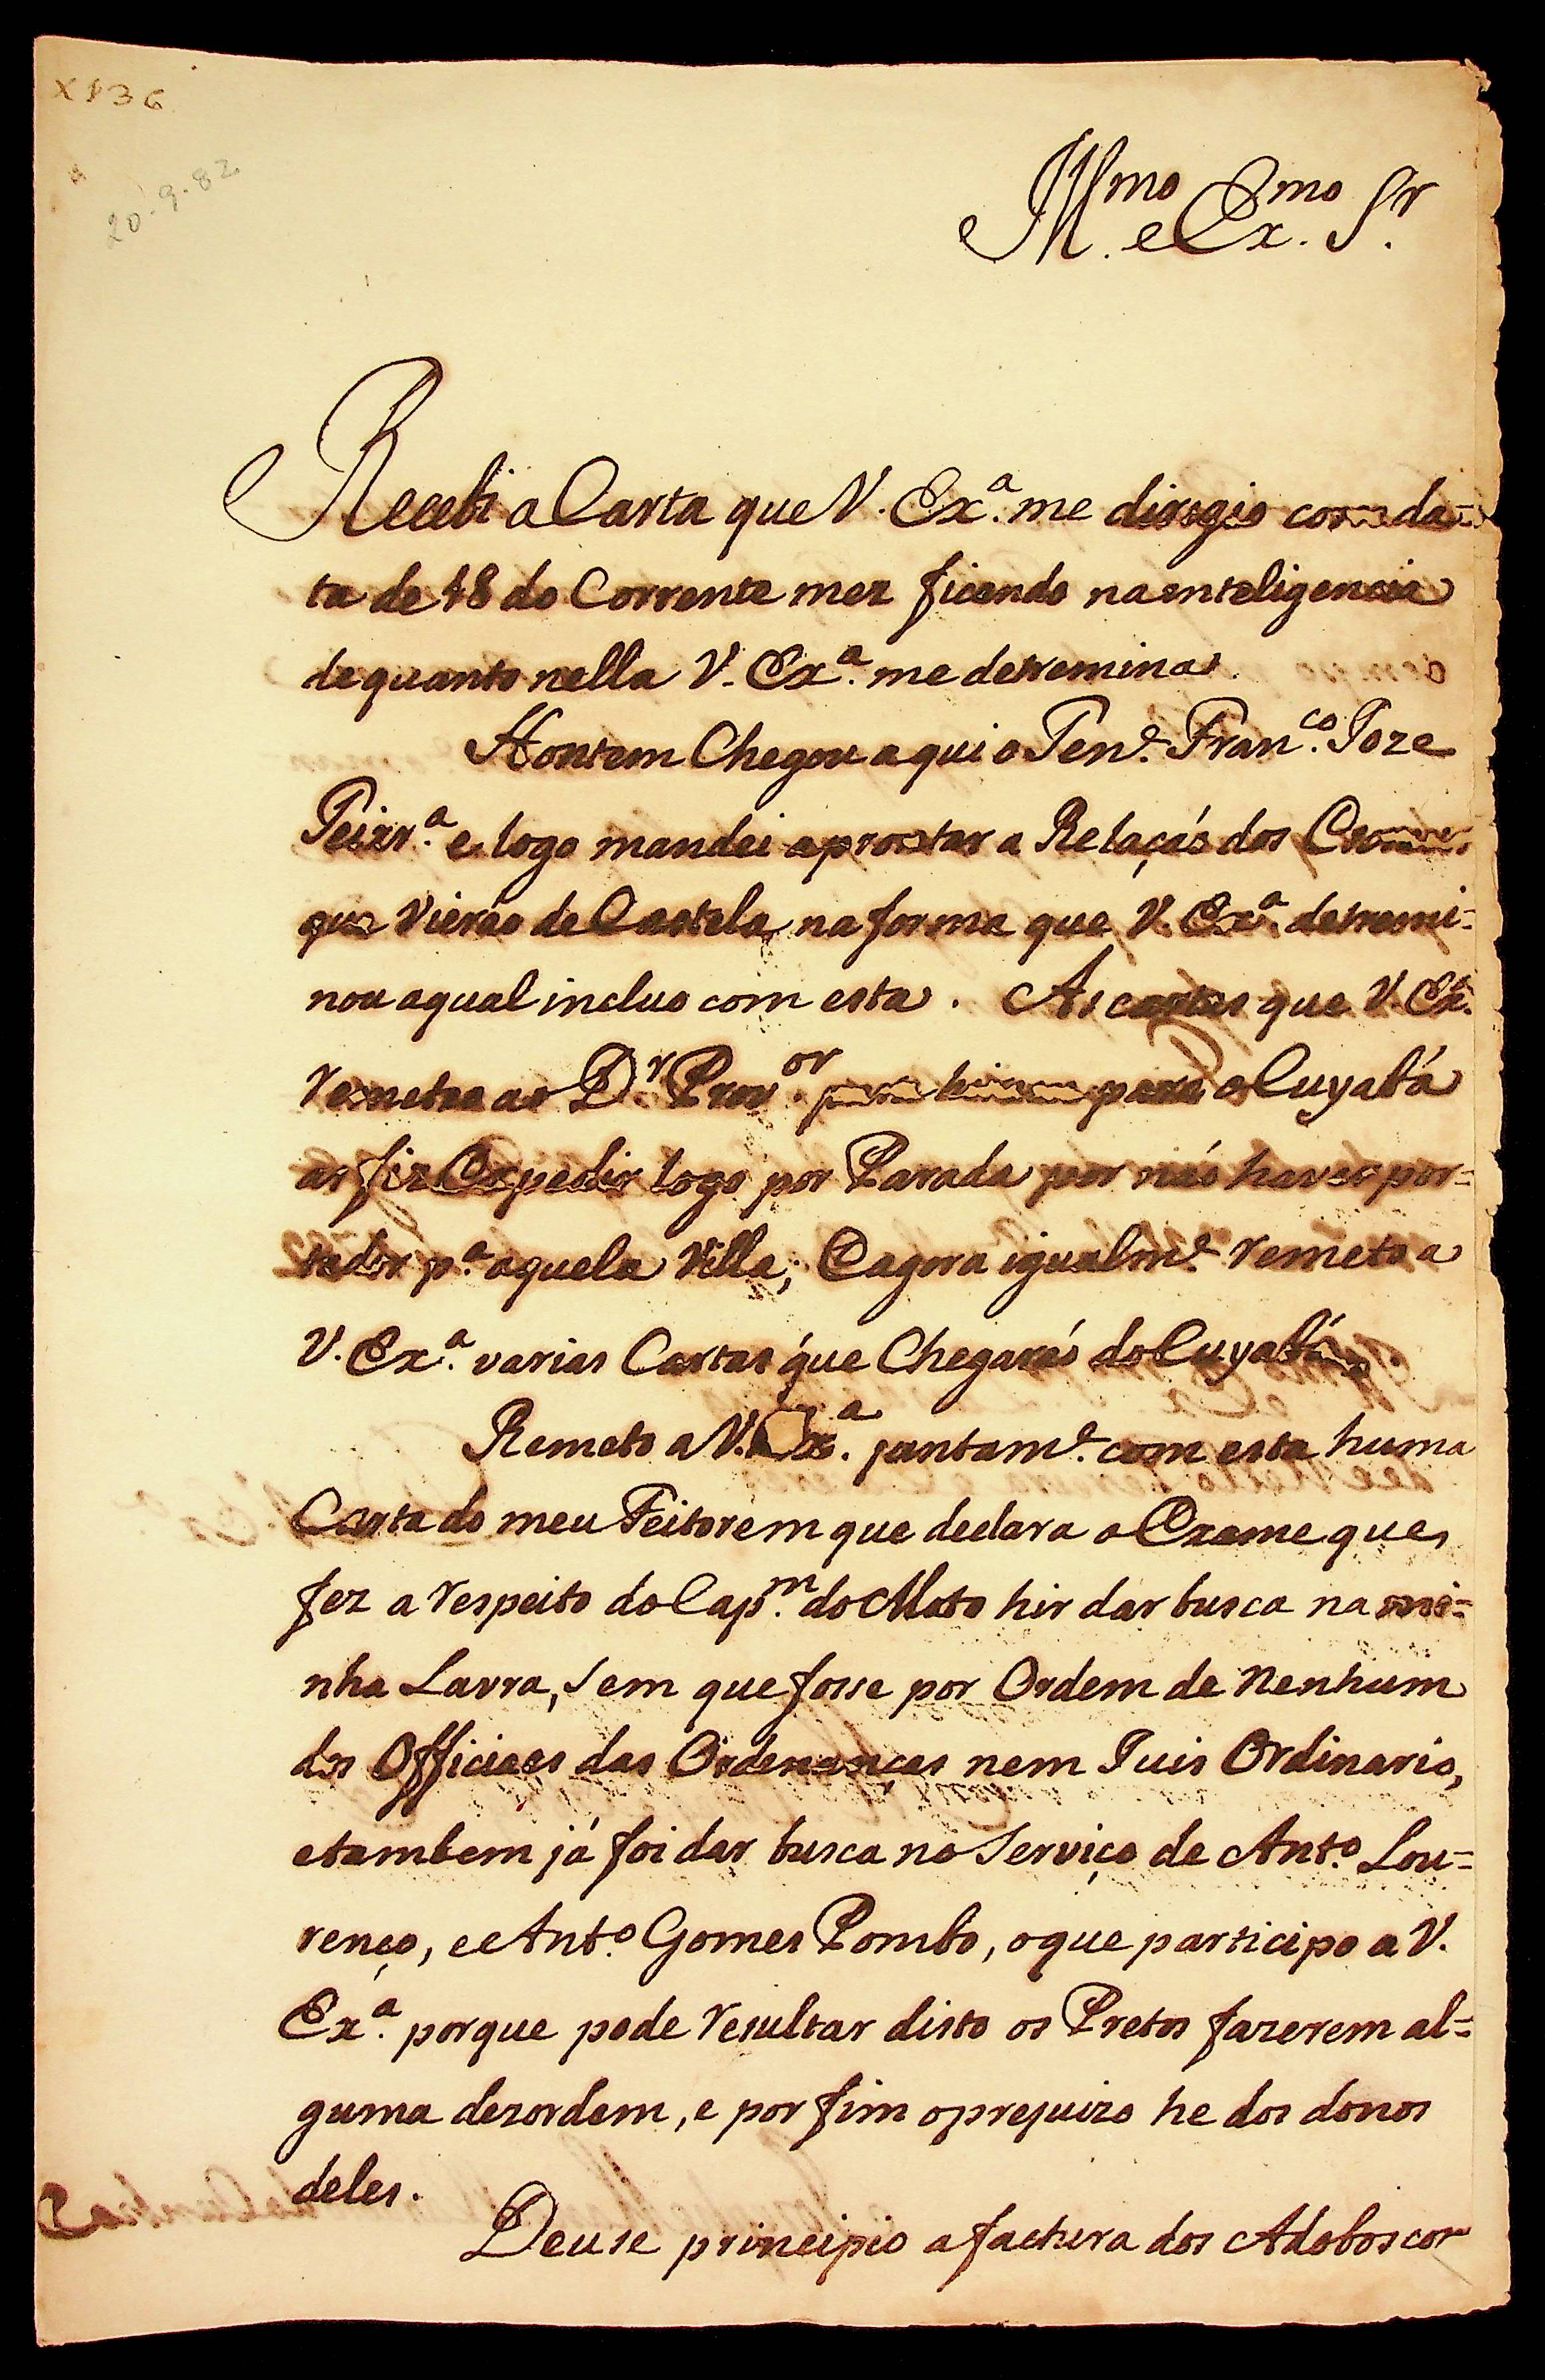 X836
20-9-82
Ill.mo e Ex.mo Sr.
Recebi a Carta que V. Ex.a me dirigio com da=
ta de 18 do Corrente mez ficando na inteligencia
de quanto nella V. Ex.a me detremina.
Hontem Chegou aqui o Ten.e Fran.co Joze
Teixr.a e logo mandei aprontar a Relaçáo dos
que Vieráo de Castela na forma que V. Ex.a detremi=
nou a qual incluo com esta. As cartas que V. Ex.a
remetea ao D.r Prov.or para o Cuyabá
as fiz Expedir logo por Parada por náo haver por=
tador p.a aquela Villa; E agora igualm.e remeto a
V. Ex.a varias Cartas que Chegaráo do Cuyabá
Remeto a V. Ex.a juntam.e com esta huma
Carta do meu Feitor em que declara o Exame que
fez a respeito do Cap.m do Mato hir dar busca na mi=
nha Lavra, sem que fosse por Ordem de nenhum
dos Officiaes das Ordenanças nem Juis Ordinario,
e tambem já foi dar busca no Serviço de Ant.o Lou=
renço, e Ant.o Gomes Pombo, o que participo a V.
Ex.a porque pode resultar disto os Pretos fazerem al=
guma dezordem, e por fim o prejuizo he dos donos
deles.
Deuse principio a factura dos Adobos cor